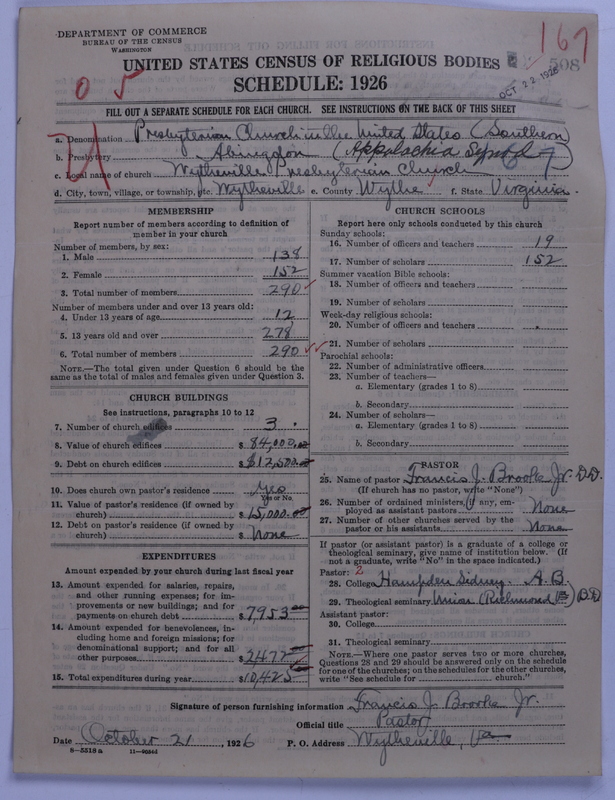 DEPARTMENT OF COMMERCE
BUREAU OF THE CENSUS
WASHINGTON
167
508
UNITED STATES CENSUS OF RELIGIOUS BODIES
OCT 22 1926
SCHEDULE: 1926
FILL OUT A SEPARATE SCHEDULE FOR EACH CHURCH. SEE INSTRUCTIONS ON THE BACK OF THIS SHEET
a. Denomination Presbyterian Church in the United States (Southern)
b. Presbytery Abingdon (Appalachia Synod)
c. Local name of church Wytheville Presbyterian Church
d. City, town, village, or township, etc. Wytheville e. County Wythe f. State Virginia.
MEMBERSHIP
Report number of members according to definition of member in your church
Number of members, by sex:
1. Male 138
2. Female 152
3. Total number of members 290
Number of members under and over 13 years old:
4. Under 13 years of age 12
5. 13 years old and over 278
6. Total number of members 290
NOTE.—The total given under Question 6 should be the same as the total of males and females given under Question 3.
CHURCH BUILDINGS
See instructions, paragraphs 10 to 12
7. Number of church edifices 3
8. Value of church edifices $ 84,000.00
9. Debt on church edifices $ $12,500.00
10. Does church own pastor's residence Yes
Yes or No.
11. Value of pastor's residence (if owned by church) $ 15,000.00
12. Debt on pastor's residence (if owned by church) $ None
EXPENDITURES
Amount expended by your church during last fiscal year
13. Amount expended for salaries, repairs, and other running expenses; for improvements or new buildings; and for payments on church debt $ 7953
14. Amount expended for benevolences, including home and foreign missions; for denominational support; and for all other purposes $ 2472
15. Total expenditures during year $ 10,425
CHURCH SCHOOLS
Report here only schools conducted by this church
Sunday schools:
16. Number of officers and teachers 19
17. Number of scholars 152
Summer vacation Bible schools:
18. Number of officers and teachers
19. Number of scholars
Week-day religious schools:
20. Number of officers and teachers
21. Number of scholars
Parochial schools:
22. Number of administrative officers
23. Number of teachers—
a. Elementary (grades 1 to 8)
b. Secondary
24. Number of scholars—
a. Elementary (grades 1 to 8)
b. Secondary
PASTOR
25. Name of pastor Francis J. Brooke Jr. D.D.
(If church has no pastor, write "None")
26. Number of ordained ministers, if any, employed as assistant pastors None
27. Number of other churches served by the pastor or his assistants None
If pastor (or assistant pastor) is a graduate of a college or theological seminary, give name of institution below. (If not a graduate, write "No" in the space indicated.)
Pastor: 2
28. College Hampden Sidney. A.B.
29. Theological seminary Union (Richmond Va) B.D.
Assistant pastor:
30. College
31. Theological seminary
NOTE.—Where one pastor serves two or more churches, Questions 28 and 29 should be answered only on the schedule for one of the churches; on the schedules for the other churches, write "See schedule for church."
Signature of person furnishing information Francis J. Brooke Jr.
Official title Pastor
Date October 21, 1926 P. O. Address Wytheville, Va
8—5518 a 11—9934d